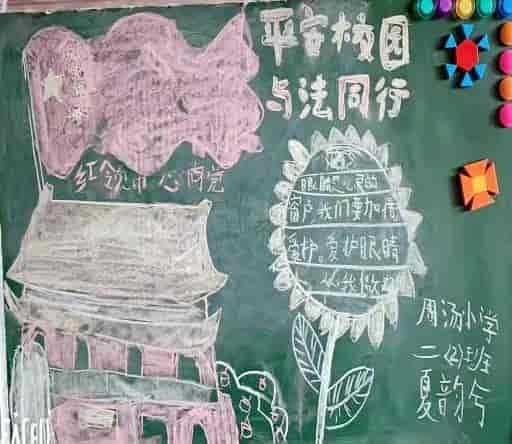 平安校园
与法同行
红领巾心向党
眼睛是心灵的
窗户我们要加倍
爱护。爱护眼睛
从我做起
周汤小学
二(2)班
夏韵兮